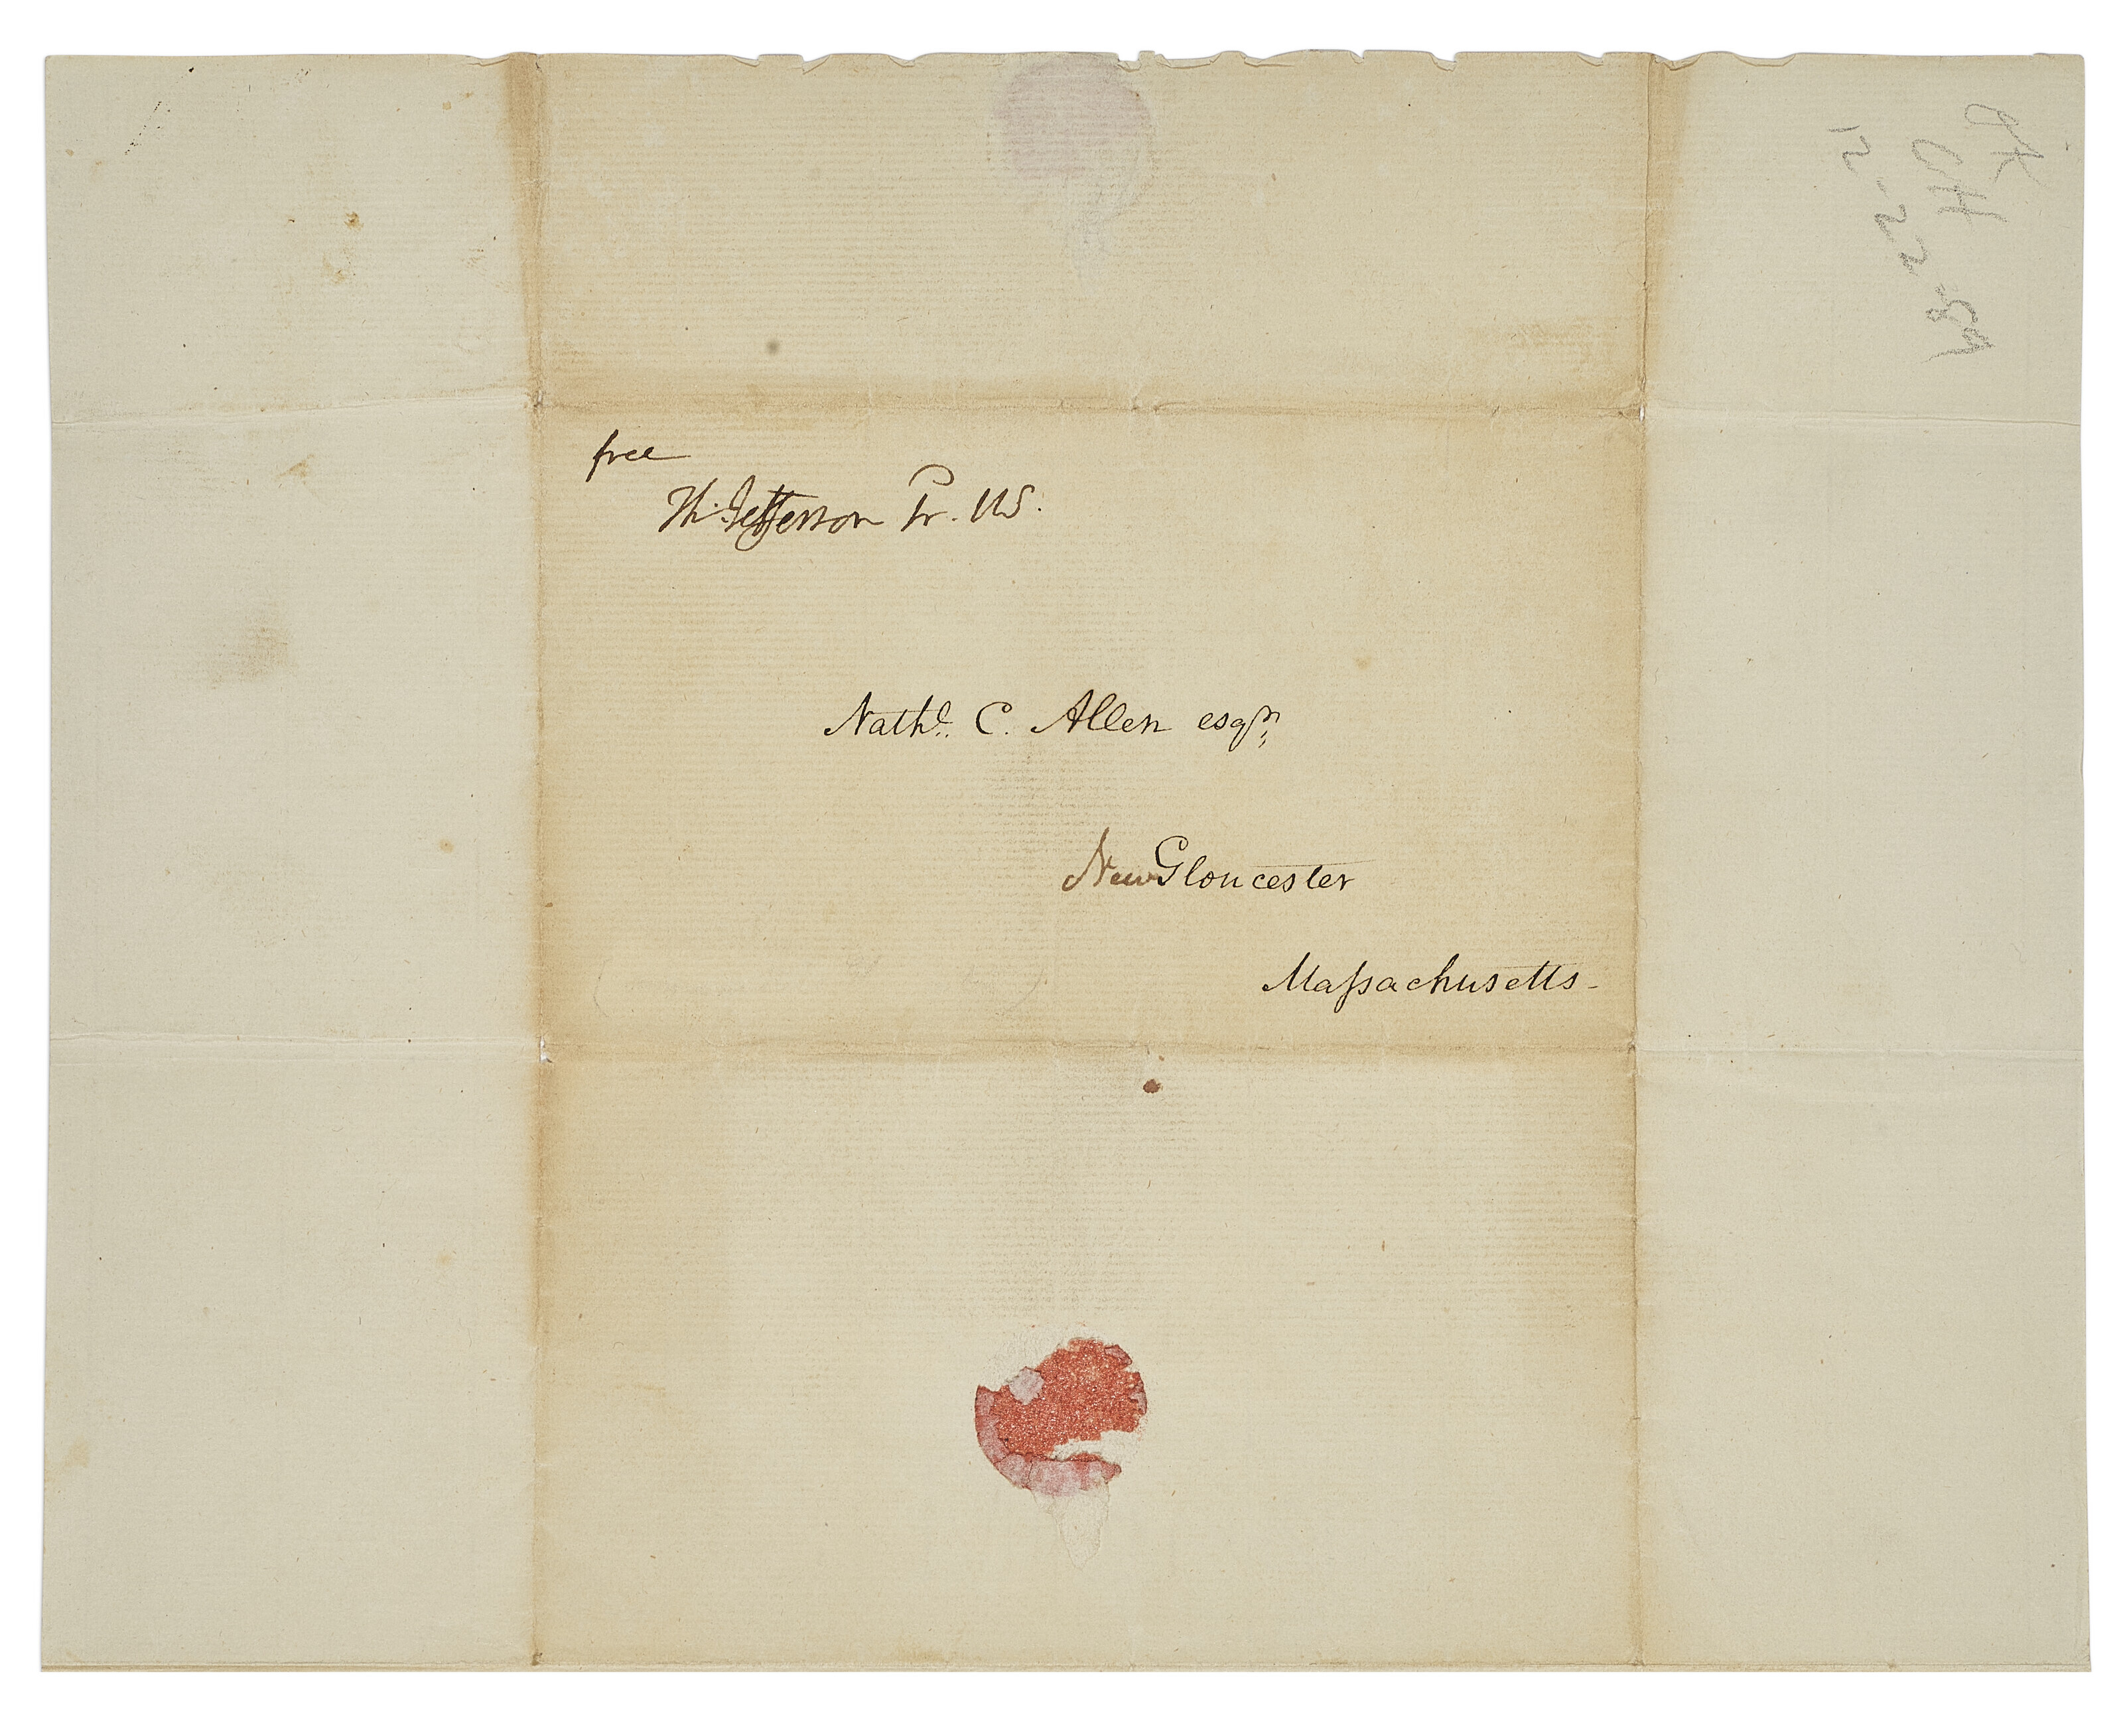 free
Th: Jefferson Pr. US.
Nathl. C. Allen esqr,
New Gloucester
Maſsachusetts-